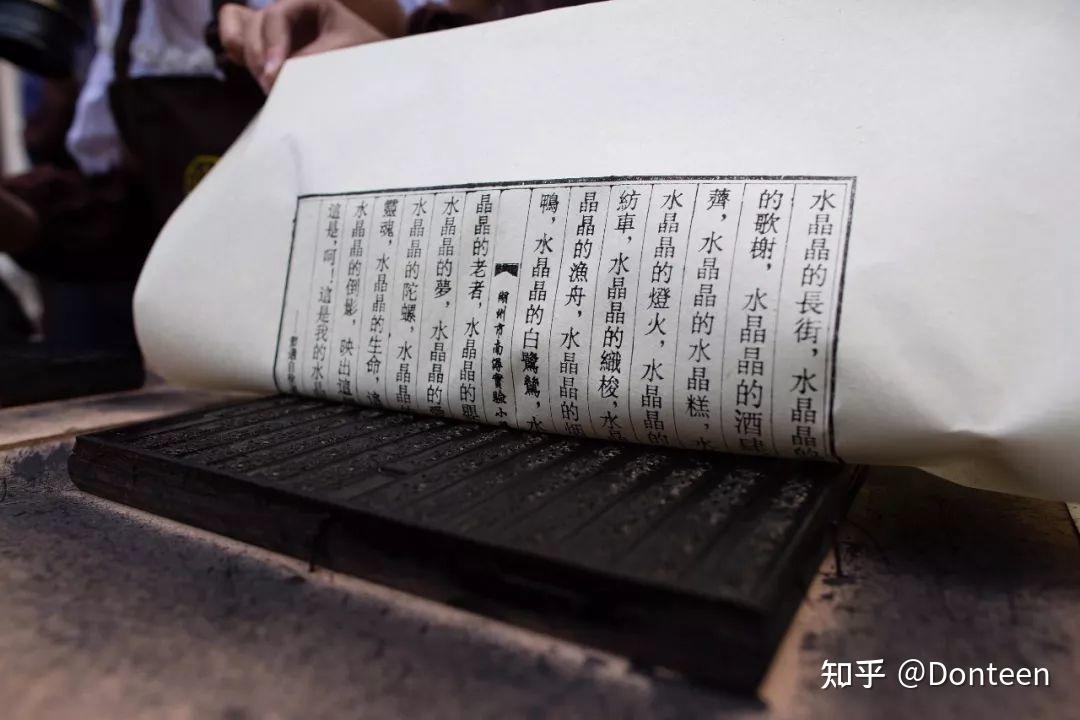 水晶晶的長街，水晶晶的
的歌榭，水晶晶的酒肆
薺，水晶晶的水晶糕，水
水晶晶的燈火，水晶晶的
紡車，水晶晶的織梭，水晶
晶晶的漁舟，水晶晶的
鴨，水晶晶的白鷺鷥，水
湖州市南潯實驗小
晶晶的老者，水晶晶的
水晶晶的夢，水晶晶的
水晶晶的陀螺，水晶晶
靈魂，水晶晶的生命，這
水晶晶的倒影，映出這
這是，呵！這是我的水晶
知乎 @Donteen